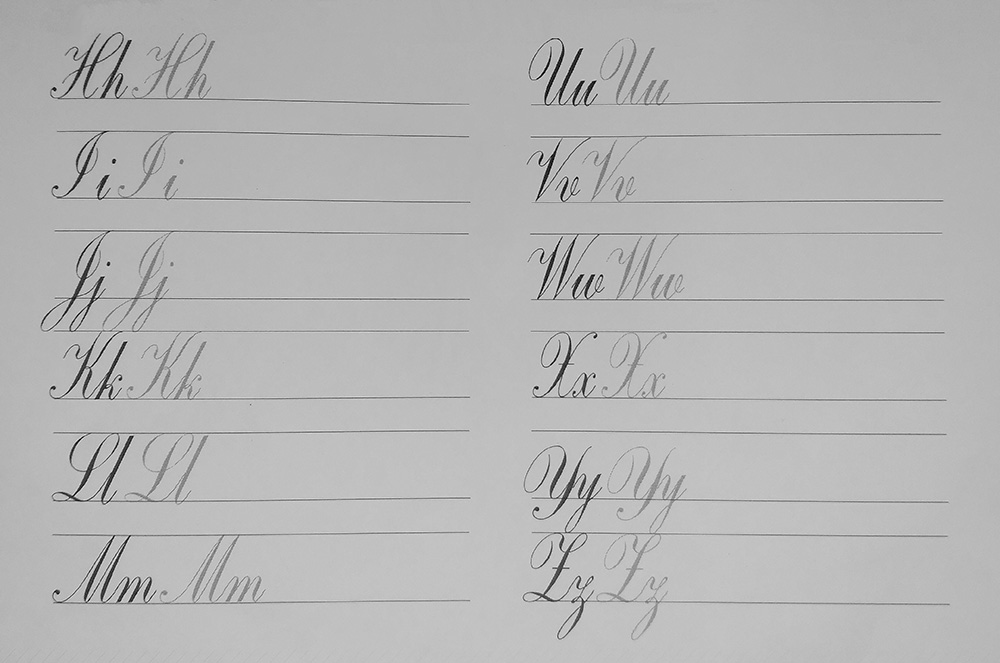 Hh Hh
Ii Ii
Jj Jj
Kk Kk
Ll Ll
Mm Mm
Uu Uu
Vv Vv
Ww Ww
Xx Xx
Yy Yy
Zz Zz